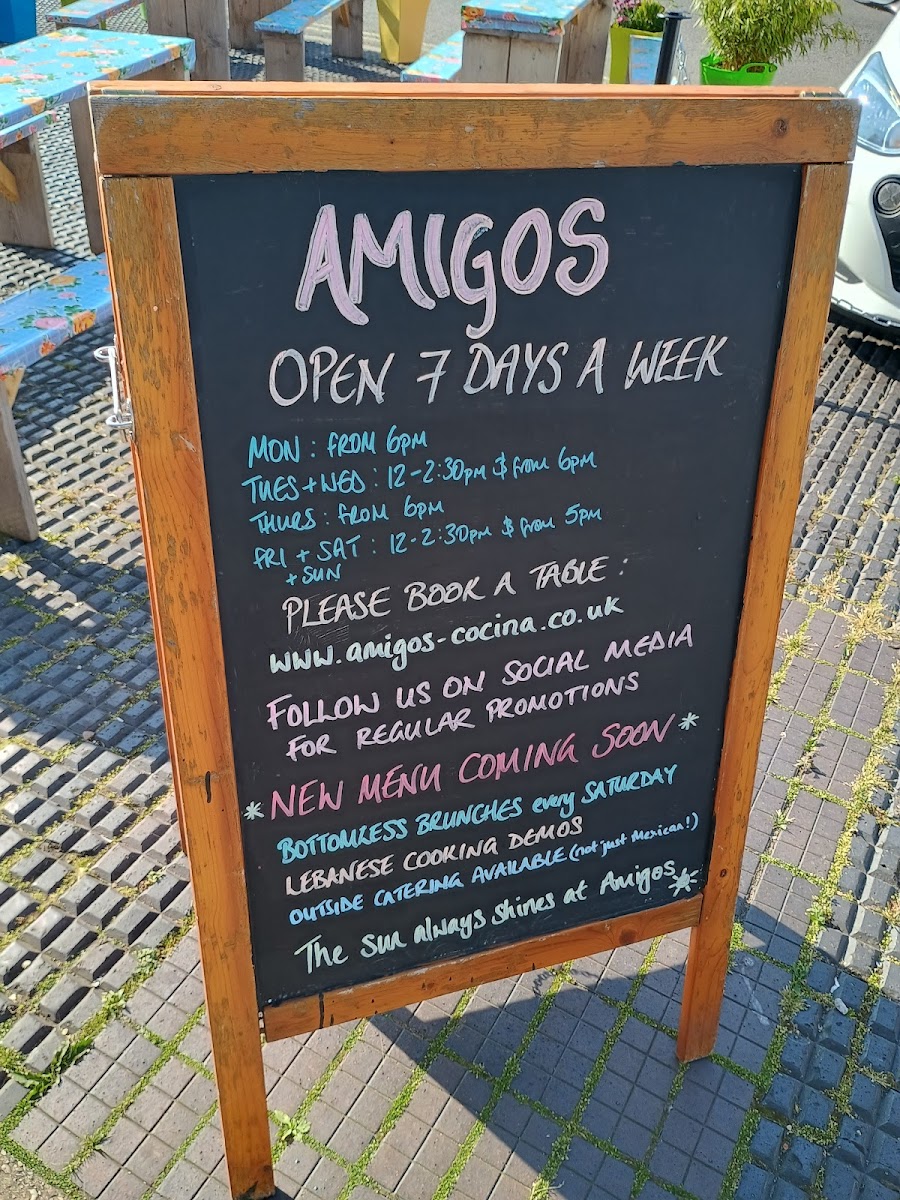 AMIGOS
OPEN 7 DAYS A WEEK
MON : FROM 6PM
TUES + WED : 12-2:30PM & from 6PM
THURS : FROM 6PM
FRI + SAT : 12-2:30PM & from 5PM
+ SUN
PLEASE BOOK A TABLE :
www.amigos-cocina.co.uk
FOLLOW US ON SOCIAL MEDIA
FOR REGULAR PROMOTIONS
* NEW MENU COMING SOON *
BOTTOMLESS BRUNCHES every SATURDAY
LEBANESE COOKING DEMOS
OUTSIDE CATERING AVAILABLE (not just Mexican!)
The sun always shines at Amigos